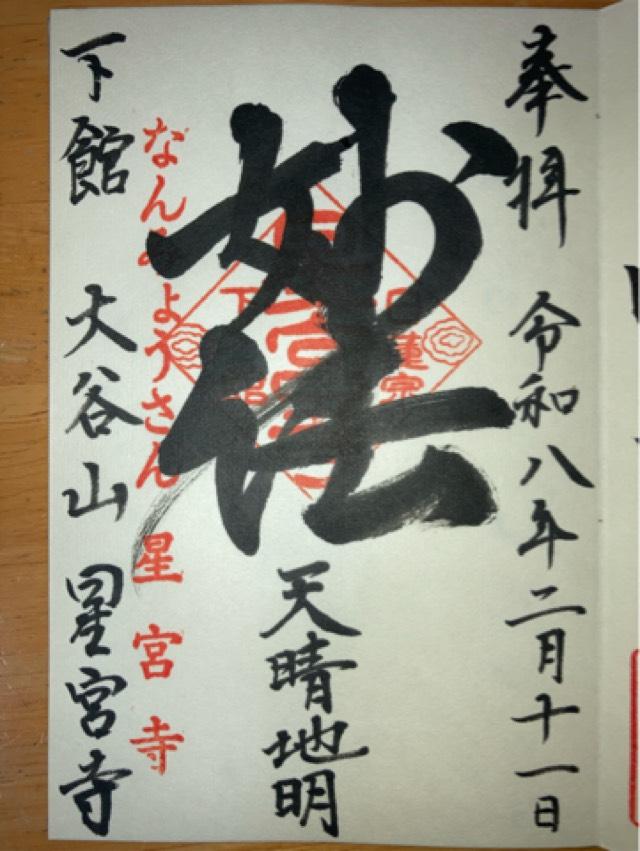 奉拝 令和八年二月十一日
妙法
天晴地明
なんみょうさん 星宮寺
下館 大谷山 星宮寺